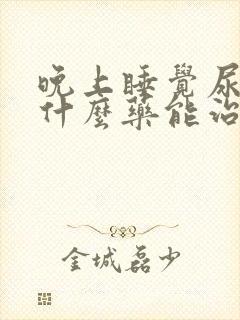 晚上睡覺尿
什麼藥能治
金城磊少